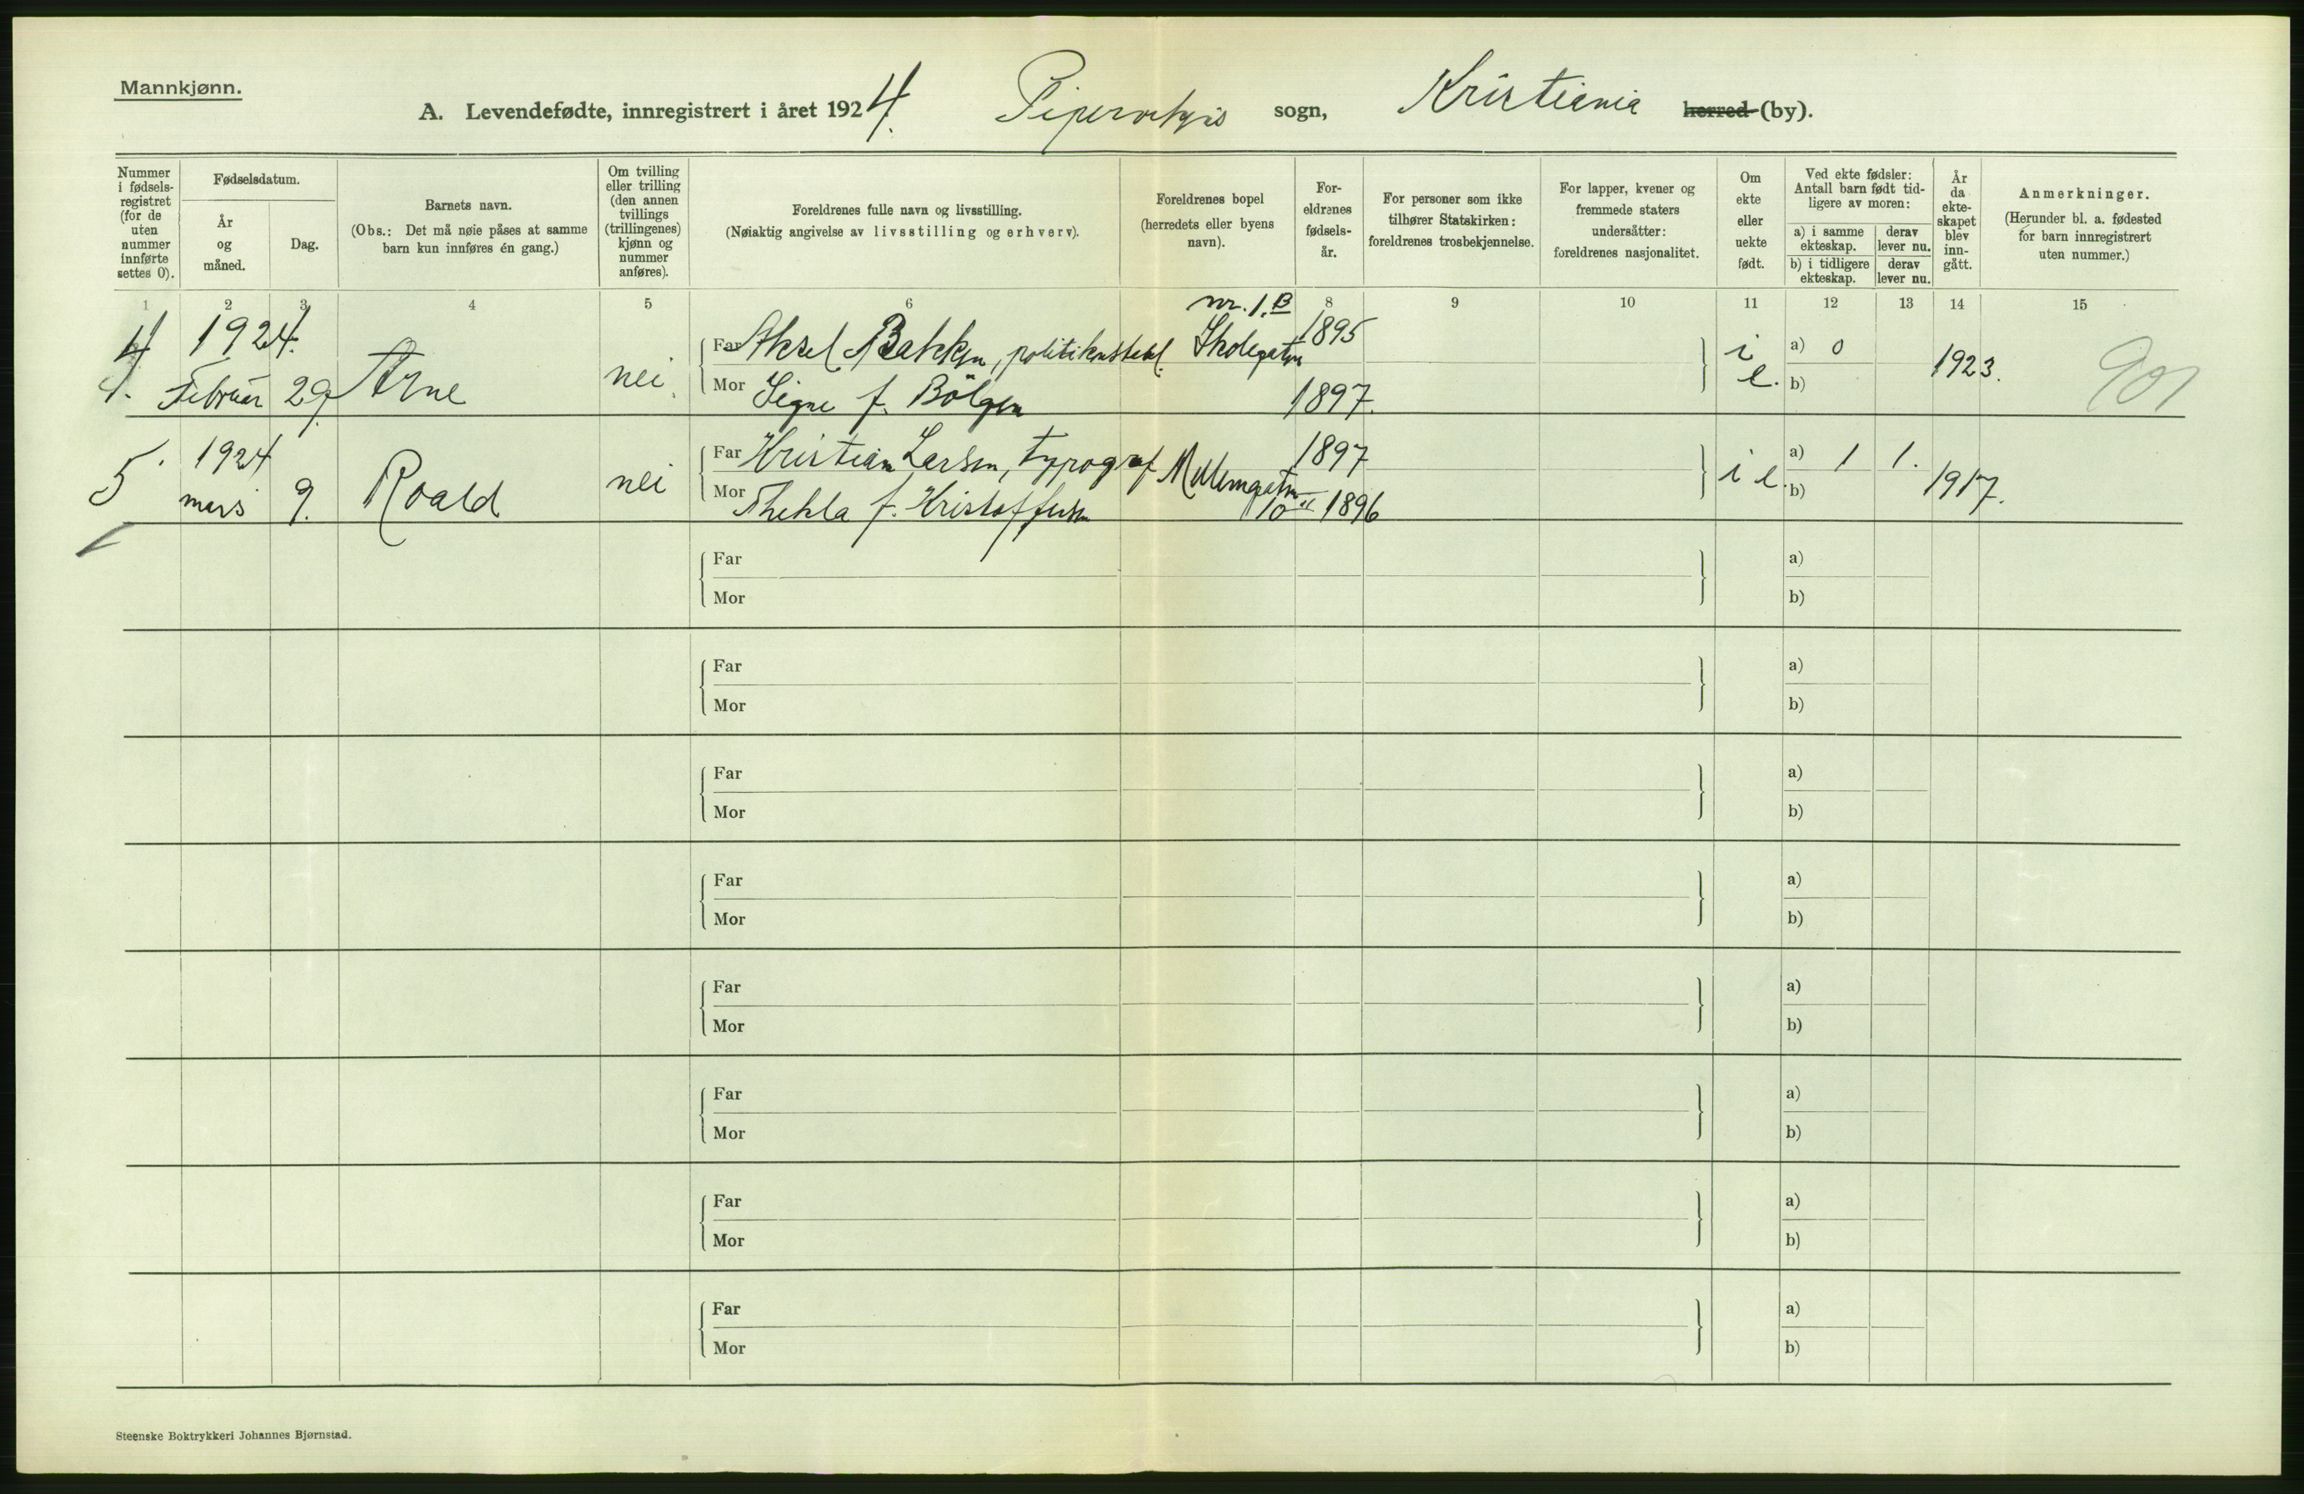 Mannkjønn.
A. Levendefødte, innregistrert i året 1924. Pipervikens sogn, Kristiania herred (by).
Nummer i fødsels-registret (for de uten nummer innførte settes 0).
Fødselsdatum.
År og måned.
Dag.
Barnets navn.
(Obs.: Det må nøie påses at samme barn kun innføres én gang.)
Om tvilling eller trilling (den annen tvillings (trillingenes) kjønn og nummer anføres).
Foreldrenes fulle navn og livsstilling.
(Nøiaktig angivelse av livsstilling og erhverv).
Foreldrenes bopel
(herredets eller byens navn).
For-eldrenes fødsels-år.
For personer som ikke tilhører Statskirken: foreldrenes trosbekjennelse.
For lapper, kvener og fremmede staters undersåtter: foreldrenes nasjonalitet.
Om ekte eller uekte født.
Ved ekte fødsler: Antall barn født tid-ligere av moren:
a) i samme ekteskap.
derav lever nu.
b) i tidligere ekteskap.
derav lever nu.
År da ekte-skapet blev inn-gått.
Anmerkninger.
(Herunder bl. a. fødested for barn innregistrert uten nummer.)
1 2 3 4 5 6 8 9 10 11 12 13 14 15
4. 1924. Februar 29. Arne nei.
Far Aksel Bakken, politikonstabel. nr. 1.B Skolegaten 1895
Mor Signe f. Bölgen 1897.
i e. a) 0 b) 1923. 901
5. 1924 mars 9. Roald nei
Far Kristian Larsen, typograf 1897
Mor Thekla f. Kristoffersen 10 1896
i e. a) 1 1. b) 1917.
Far
Mor
a)
b)
Far
Mor
a)
b)
Far
Mor
a)
b)
Far
Mor
a)
b)
Far
Mor
a)
b)
Far
Mor
a)
b)
Far
Mor
a)
b)
Far
Mor
a)
b)
Steenske Boktrykkeri Johannes Bjørnstad.